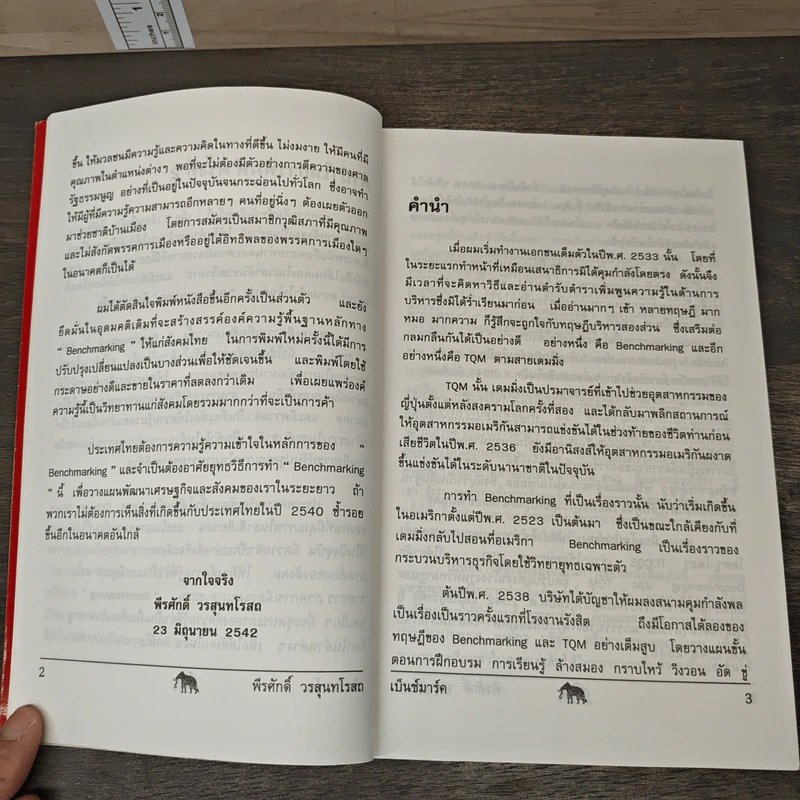 1
2
inches
ขึ้น ให้มวลชนมีความรู้และความคิดในทางที่ดีขึ้น ไม่งมงาย ให้มีคนที่มี
คุณภาพในตำแหน่งต่างๆ พอที่จะไม่ต้องมีตัวอย่างการตีความของศาล
รัฐธรรมนูญ อย่างที่เป็นอยู่ในปัจจุบันจนกระฉ่อนไปทั่วโลก ซึ่งอาจทำ
ให้มีผู้ที่มีความรู้ความสามารถอีกหลายๆ คนที่อยู่นิ่งๆ ต้องเผยตัวออก
มาช่วยชาติบ้านเมือง โดยการสมัครเป็นสมาชิกวุฒิสภาที่มีคุณภาพ
และไม่สังกัดพรรคการเมืองหรืออยู่ใต้อิทธิพลของพรรคการเมืองใดๆ
ในอนาคตก็เป็นได้
ผมได้ตัดสินใจพิมพ์หนังสือขึ้นอีกครั้งเป็นส่วนตัว และยัง
ยึดมั่นในอุดมคติเดิมที่จะสร้างสรรค์องค์ความรู้พื้นฐานหลักทาง
“ Benchmarking ” ให้แก่สังคมไทย ในการพิมพ์ใหม่ครั้งนี้ได้มีการ
ปรับปรุงเปลี่ยนแปลงเป็นบางส่วนเพื่อให้ชัดเจนขึ้น และพิมพ์โดยใช้
กระดาษอย่างดีและขายในราคาที่ลดลงกว่าเดิม เพื่อเผยแพร่องค์
ความรู้นี้เป็นวิทยาทานแก่สังคมโดยรวมมากกว่าที่จะเป็นการค้า
ประเทศไทยต้องการความรู้ความเข้าใจในหลักการของ “
Benchmarking ” และจำเป็นต้องอาศัยยุทธวิธีการทำ “ Benchmarking
” นี้ เพื่อวางแผนพัฒนาเศรษฐกิจและสังคมของเราในระยะยาว ถ้า
พวกเราไม่ต้องการเห็นสิ่งที่เกิดขึ้นกับประเทศไทยในปี 2540 ซ้ำรอย
ขึ้นอีกในอนาคตอันใกล้
จากใจจริง
พีรศักดิ์ วรสุนทโรสถ
23 มิถุนายน 2542
2
พีรศักดิ์ วรสุนทโรสถ
คำนำ
เมื่อผมเริ่มทำงานเอกชนเต็มตัวในปีพ.ศ. 2533 นั้น โดยที่
ในระยะแรกทำหน้าที่เหมือนเสนาธิการมิได้คุมกำลังโดยตรง ดังนั้นจึง
มีเวลาที่จะคิดหาวิธีและอ่านตำรับตำราเพิ่มพูนความรู้ในด้านการ
บริหารซึ่งมิได้ร่ำเรียนมาก่อน เมื่ออ่านมากๆ เข้า หลายทฤษฎี มาก
หมอ มากความ ก็รู้สึกจะถูกใจกับทฤษฎีบริหารสองส่วน ซึ่งเสริมต่อ
กลมกลืนกันได้เป็นอย่างดี อย่างหนึ่ง คือ Benchmarking และอีก
อย่างหนึ่งคือ TQM ตามสายเดมมิ่ง
TQM นั้น เดมมิ่งเป็นปรมาจารย์ที่เข้าไปช่วยอุตสาหกรรมของ
ญี่ปุ่นตั้งแต่หลังสงครามโลกครั้งที่สอง และได้กลับมาพลิกสถานการณ์
ให้อุตสาหกรรมอเมริกันสามารถแข่งขันได้ในช่วงท้ายของชีวิตท่านก่อน
เสียชีวิตในปีพ.ศ. 2536 ยังมีอานิสงส์ให้อุตสาหกรรมอเมริกันผงาด
ขึ้นแข่งขันได้ในระดับนานาชาติในปัจจุบัน
การทำ Benchmarking ที่เป็นเรื่องราวนั้น นับว่าเริ่มเกิดขึ้น
ในอเมริกาตั้งแต่ปีพ.ศ. 2523 เป็นต้นมา ซึ่งเป็นขณะใกล้เคียงกับที่
เดมมิ่งกลับไปสอนที่อเมริกา Benchmarking เป็นเรื่องราวของ
กระบวนบริหารธุรกิจโดยใช้วิทยายุทธเฉพาะตัว
ต้นปีพ.ศ. 2538 บริษัทได้บัญชาให้ผมลงสนามคุมกำลังพล
เป็นเรื่องเป็นราวครั้งแรกที่โรงงานรังสิต ถึงมีโอกาสได้ลองของ
ทฤษฎีของ Benchmarking และ TQM อย่างเต็มสูบ โดยวางแผนขั้น
ตอนการฝึกอบรม การเรียนรู้ ล้างสมอง กราบไหว้ วิงวอน อัด ขู่
เบ็นช์มาร์ค
3